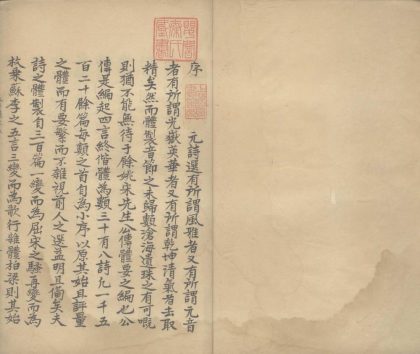 序
元詩選有所謂風雅者又有所謂元音
者有所謂光嶽英華者又有所謂乾坤清氣者去取
精矣然而體製音節之未歸類滄海遺珠之有可嘅
則猶不能無待于餘姚宋先生公傳體要之編也公
傳是編起四言終偕體為類三十有八詩凡一千五
百二十餘篇每類之首自為小序以原其始且評量
之體而有要繁而不雜視前人之選益明且備矣夫
詩之體製自三百篇一變而為屈宋之騷再變而為
枚乗蘇李之五言三變而為歌行雜體柏梁則其始